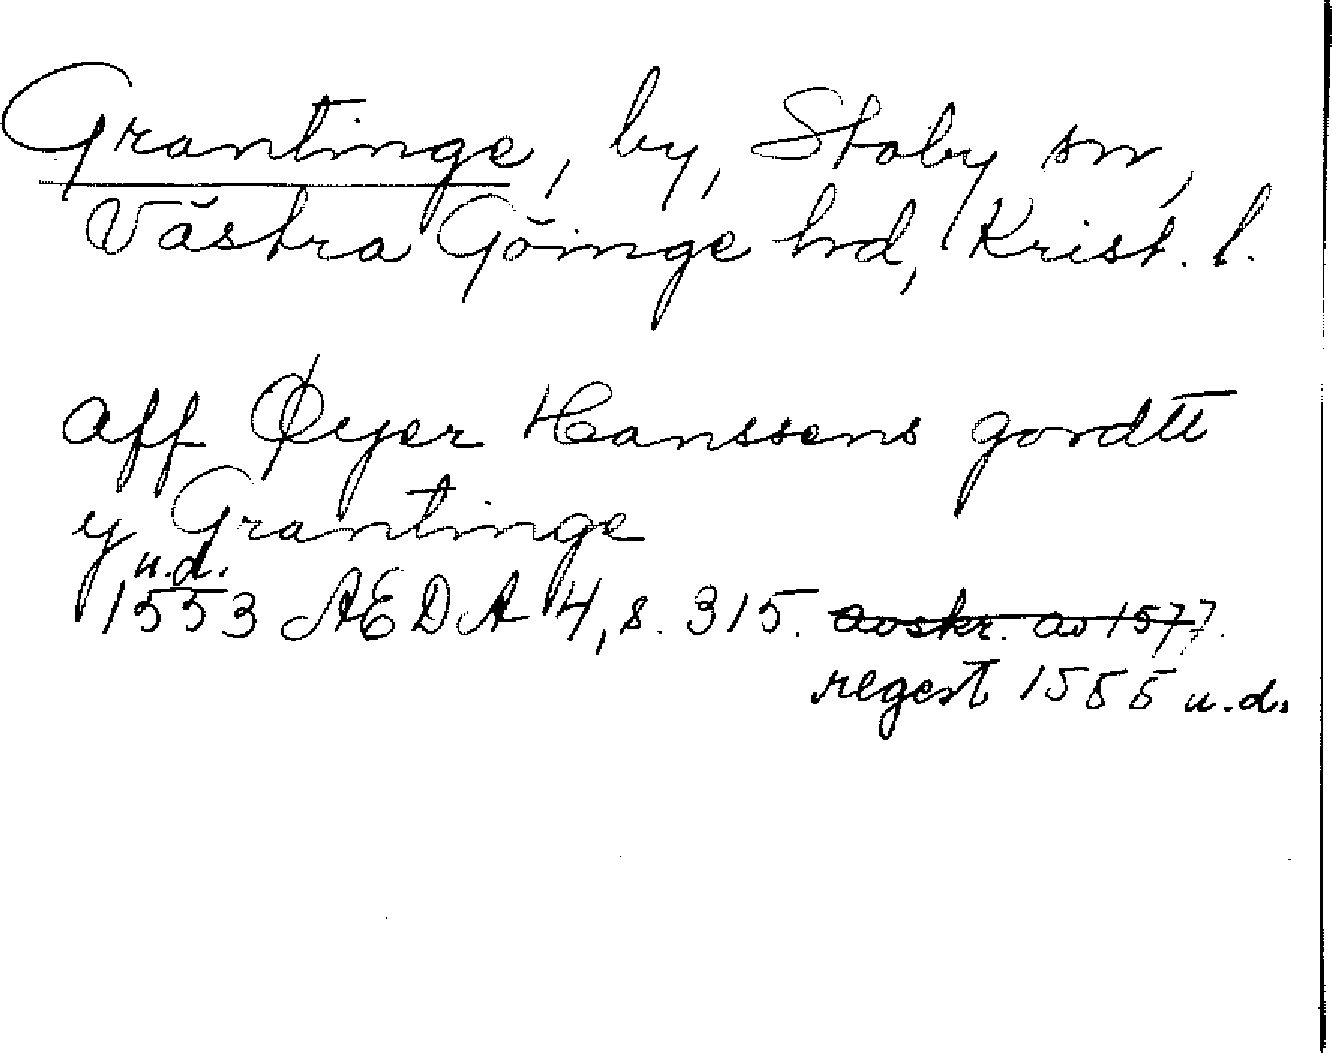 Grantinge, by, Stoby sn,
Västra Göinge hd, Krist. l.
aff Øyer Hanssens gordtt
y Grantinge
u.d.
1553 ÆDA 4, s. 315. avskr. av 1577.
regest 1555 u.d.